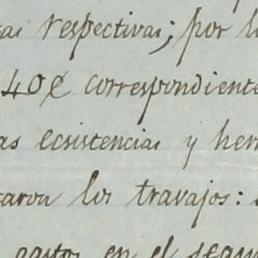 as respectivas; por l
40¢ correspondiente
as ecsistencias y her
aron los travajos:
gastos en el segun